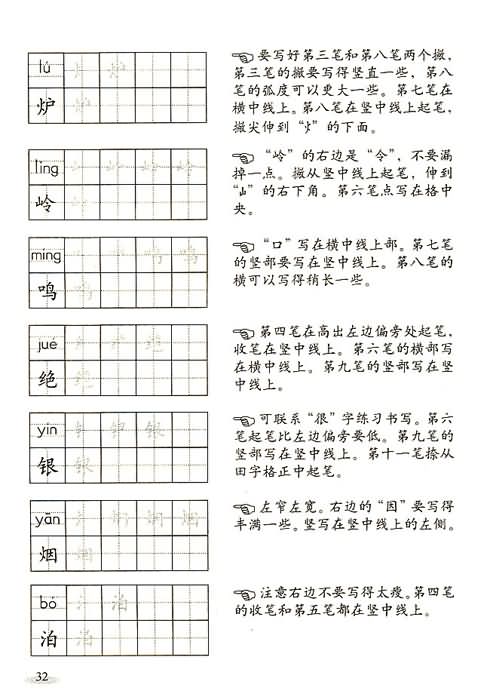 lú
炉
☜要写好第三笔和第八笔两个撇,
第三笔的撇要写得竖直一些，第八
笔的弧度可以更大一些。第七笔在
横中线上。第八笔在竖中线上起笔，
撇尖伸到“火”的下面。
líng
岭
☜“岭”的右边是“令”，不要漏
掉一点。撇从竖中线上起笔，伸到
“山”的右下角。第六笔点写在格中
央。
míng
鸣
☜“口”写在横中线上部。第七笔
的竖部要写在竖中线上。第八笔的
横可以写得稍长一些。
jué
绝
☜第四笔在高出左边偏旁处起笔，
收笔在竖中线上。第六笔的横部写
在横中线上。第九笔的竖部写在竖
中线上。
yín
银
☜可联系“很”字练习书写。第六
笔起笔比左边偏旁要低。第九笔的
竖部写在竖中线上。第十一笔捺从
田字格正中起笔。
yān
烟
☜左窄右宽。右边的“因”要写得
丰满一些。竖写在竖中线上的左侧。
bó
泊
☜注意右边不要写得太瘦。第四笔
的收笔和第五笔都在竖中线上。
32